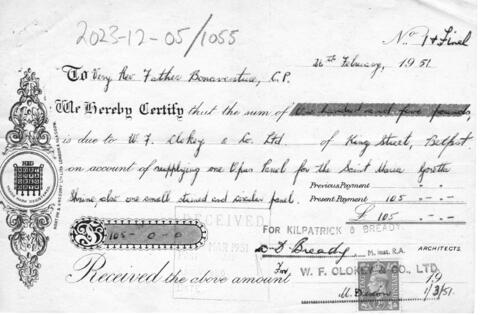 2023-12-05/1055
No 1 & Final
26th February, 1951
To Very Rev. Father Bonaventure, C.P.
We Hereby Certify that the sum of One hundred and five pounds,
is due to W. F. Clokey & Co. Ltd. of King Street, Belfast
on account of supplying one Opus Panel for the Saint Maria Goretti
Shrine, also one small stained and circular panel.
Previous Payment " - " - "
Present Payment 105 - " - "
£ 105 - " - "
RECEIVED
MAR 1951
£ 105 - 0 - 0
FOR KILPATRICK & BREADY
D Bready M. Inst. R.A. ARCHITECTS.
Received the above amount For W. F. CLOKEY & CO., LTD. 19
1/3/51